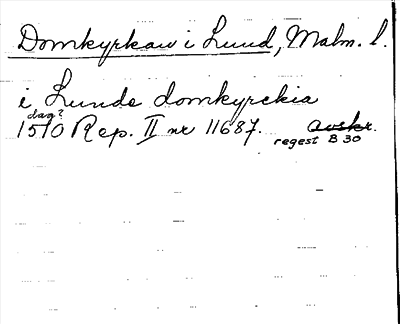 Domkyrkan i Lund, Malm. l.
i Lunde domkyrckia
dag?
1510 Rep. II nr 11687. avskr.
regest B 30